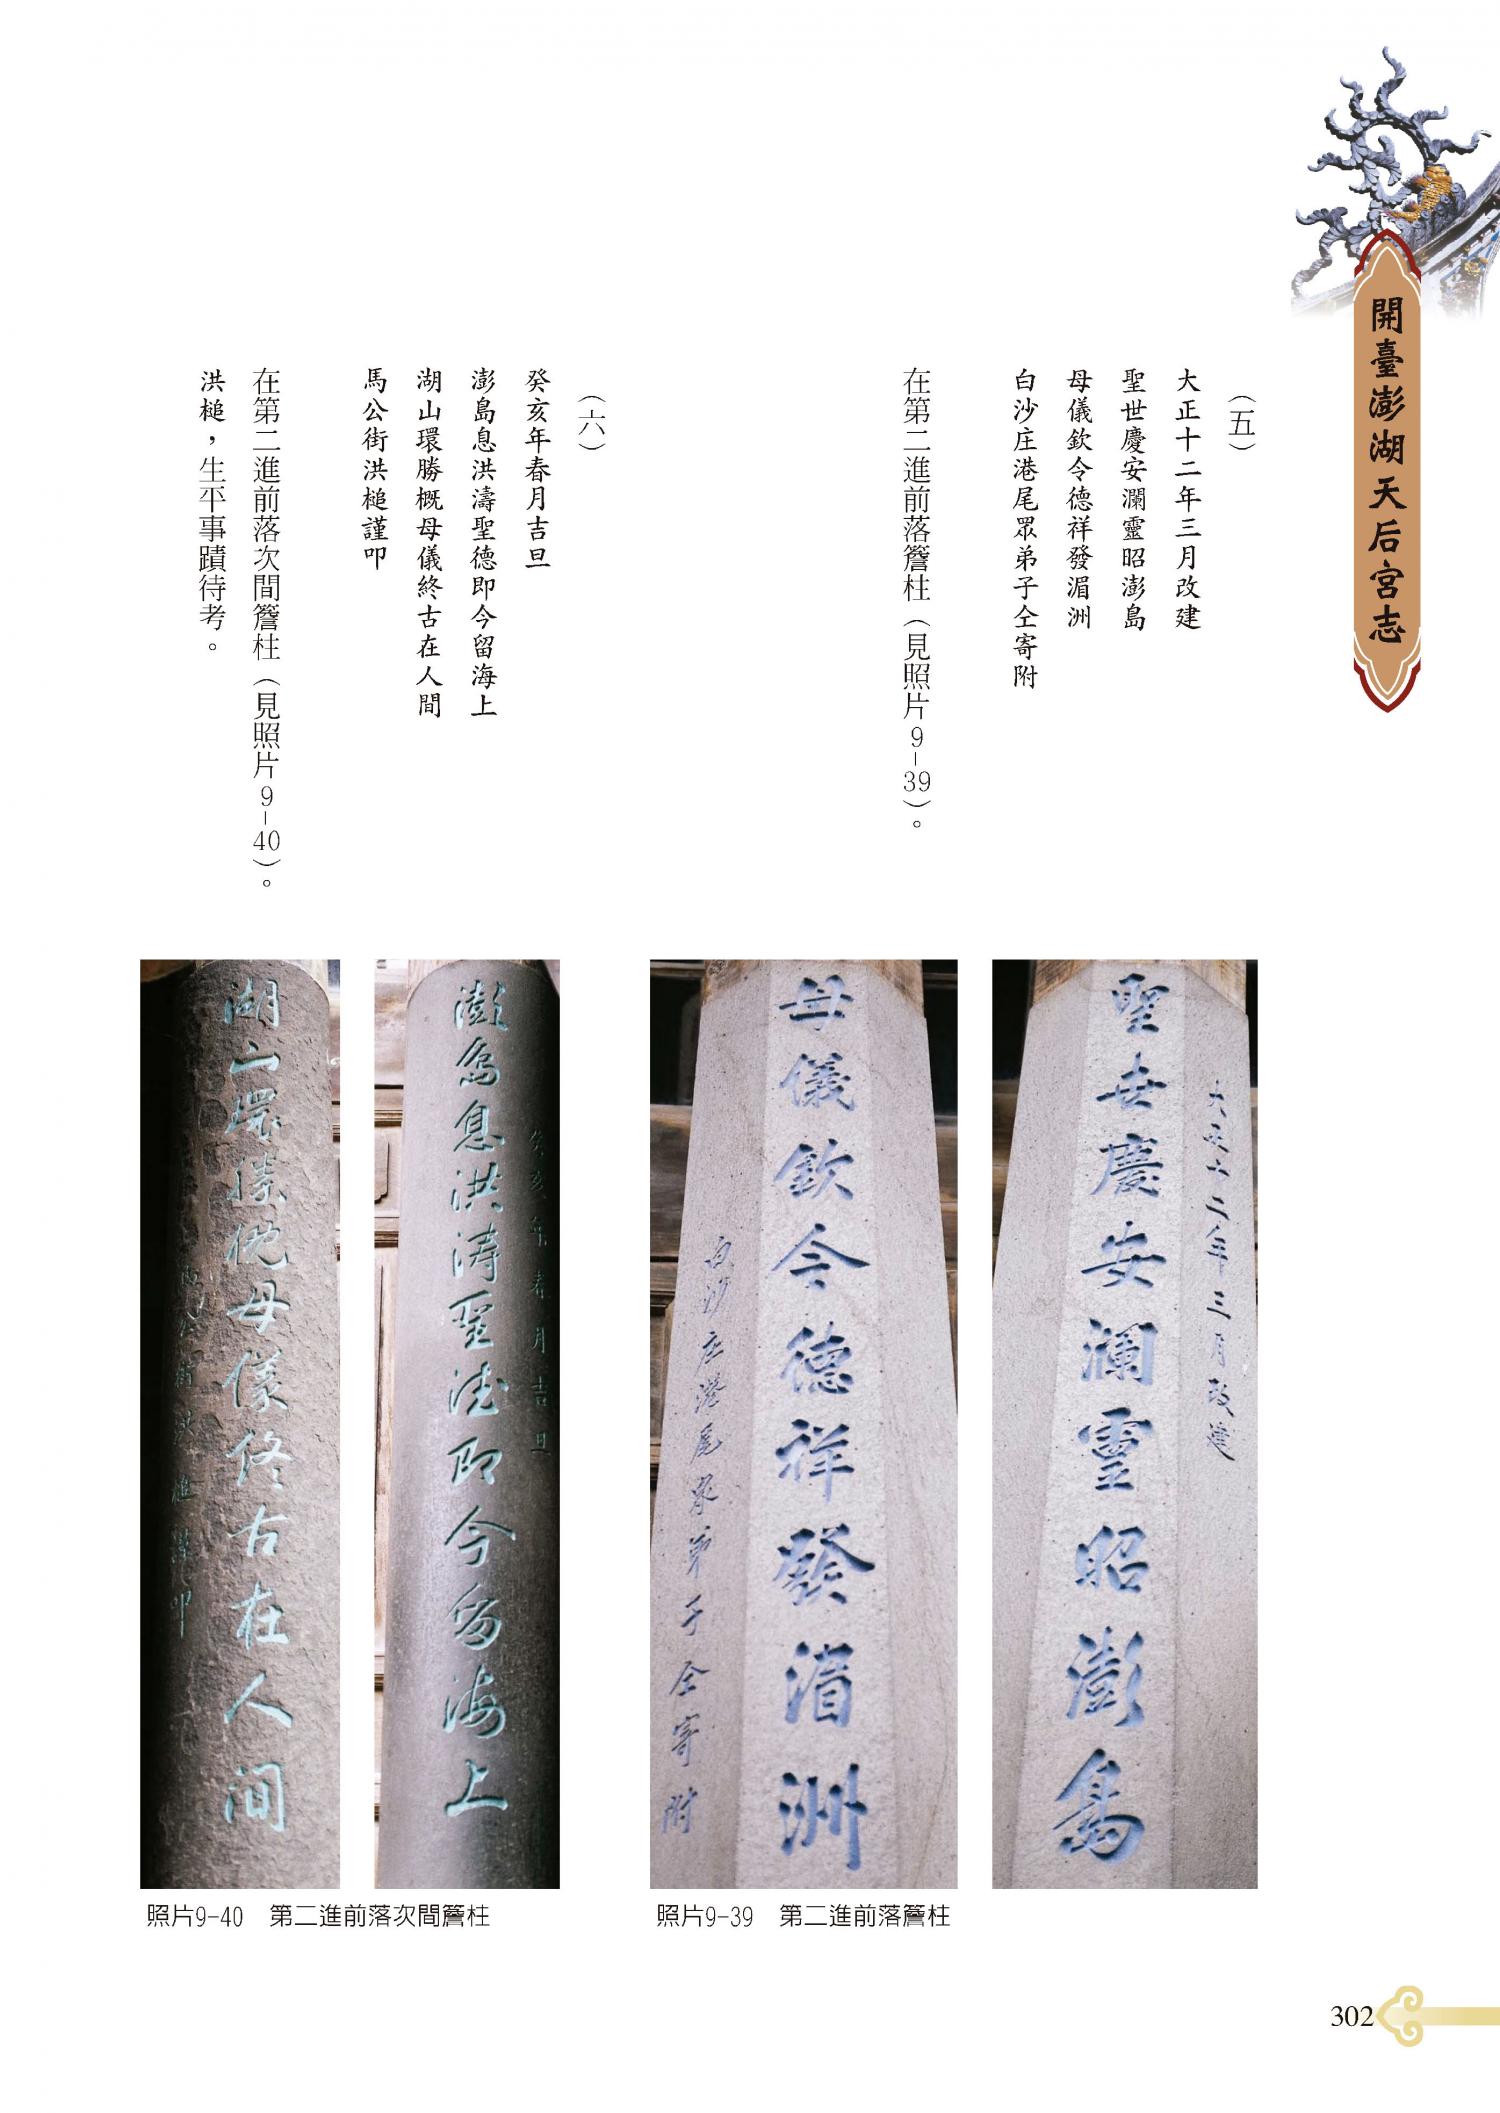 開臺澎湖天后宮志
（五）
大正十二年三月改建
聖世慶安瀾靈昭澎島
母儀欽令德祥發湄洲
白沙庄港尾眾弟子仝寄附
在第二進前落簷柱（見照片9-39）。
（六）
癸亥年春月吉旦
澎島息洪濤聖德即今留海上
湖山環勝概母儀終古在人間
馬公街洪槌謹叩
在第二進前落次間簷柱（見照片9-40）。
洪槌，生平事蹟待考。
大正十二年三月改建
聖世慶安瀾靈昭澎島
母儀欽令德祥發湄洲
白沙庄港尾眾弟子仝寄附
照片9-39　第二進前落簷柱
癸亥年春月吉旦
澎島息洪濤聖德即今留海上
湖山環勝概母儀終古在人間
馬公街洪槌謹叩
照片9-40　第二進前落次間簷柱
302